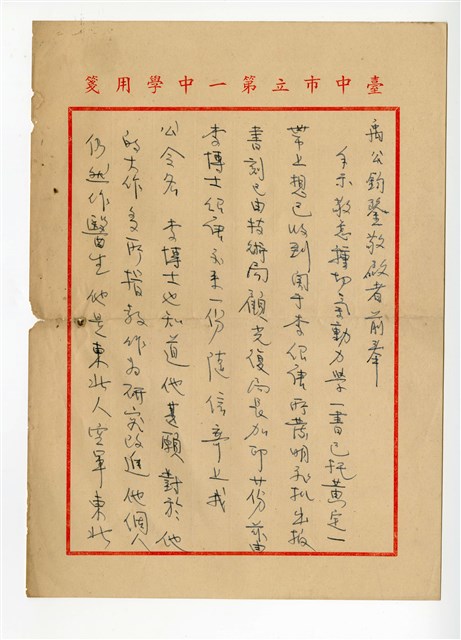 臺中市立第一中學用箋
禹公鈞鑒敬啟者前奉
手示敬悉 空氣動力學一書已托黃定一
帶上想已收到關于李 所發明 批出報
書刻已由技術局顧光復局長加印廿份 由
李博士 來一份隨信奉上 我
公令名 李博士也知道他甚願對於他
的大作多所指教作為研究改進他個人
仍然作醫生他是東北人空軍東北